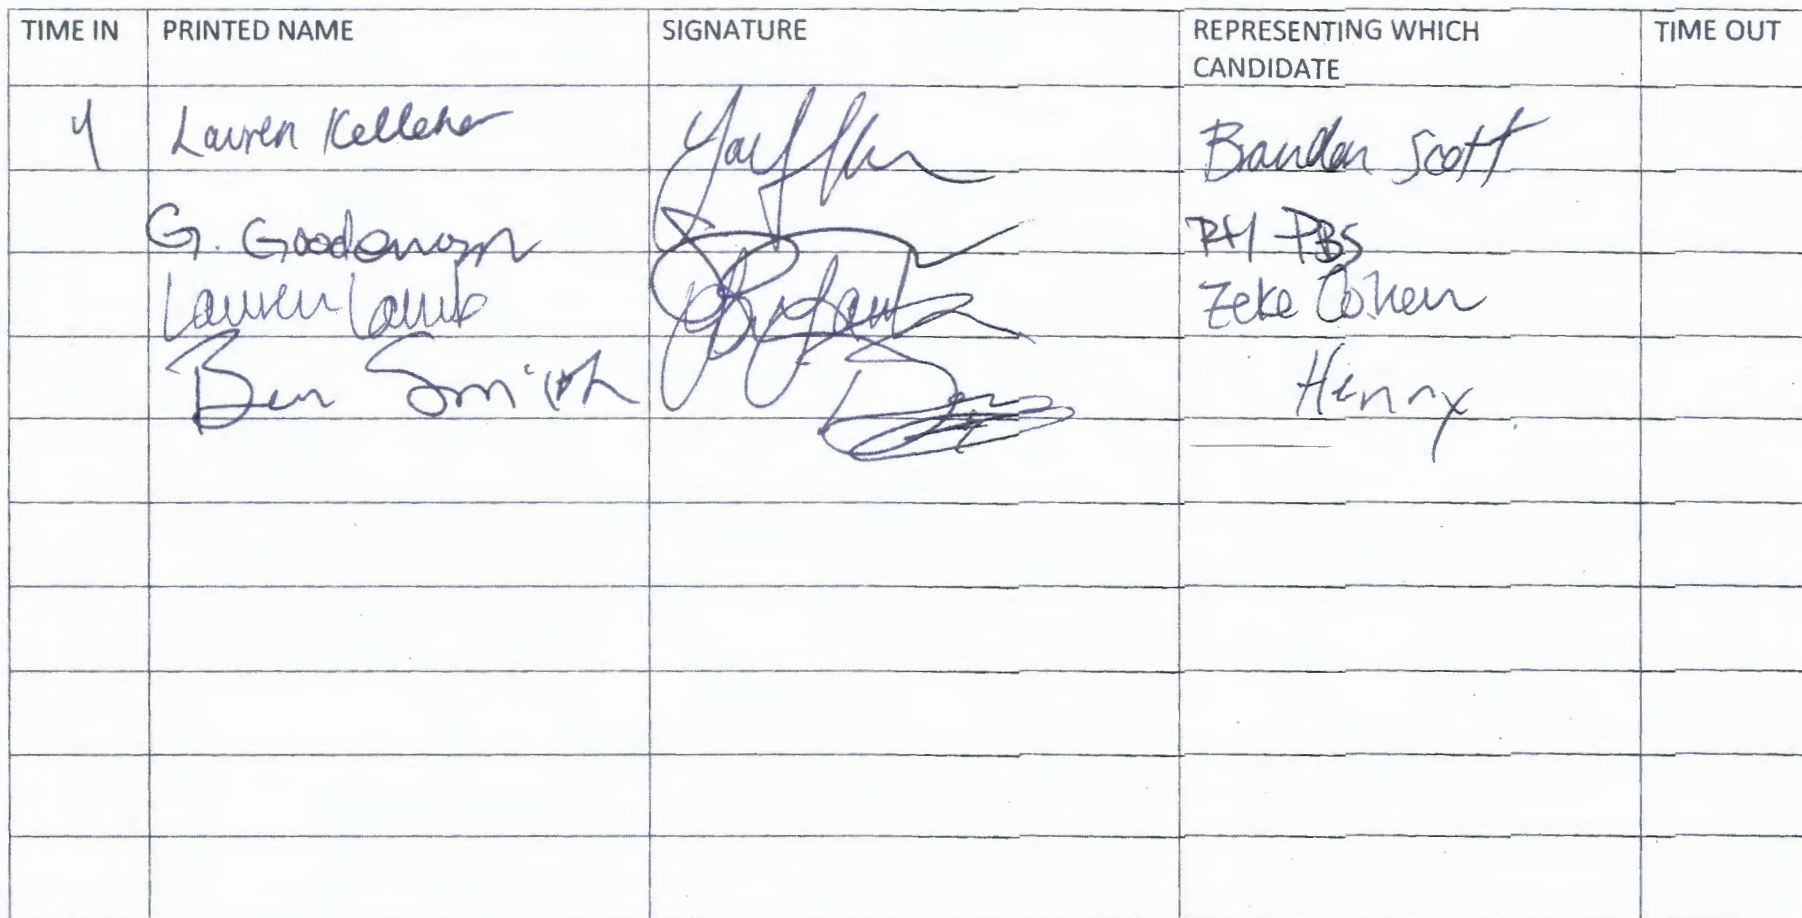 TIME IN PRINTED NAME SIGNATURE REPRESENTING WHICH CANDIDATE TIME OUT
4 Lauren Kelleher Brandon Scott
G. PBS
Lauren Zeke Cohen
Ben Smith Henry